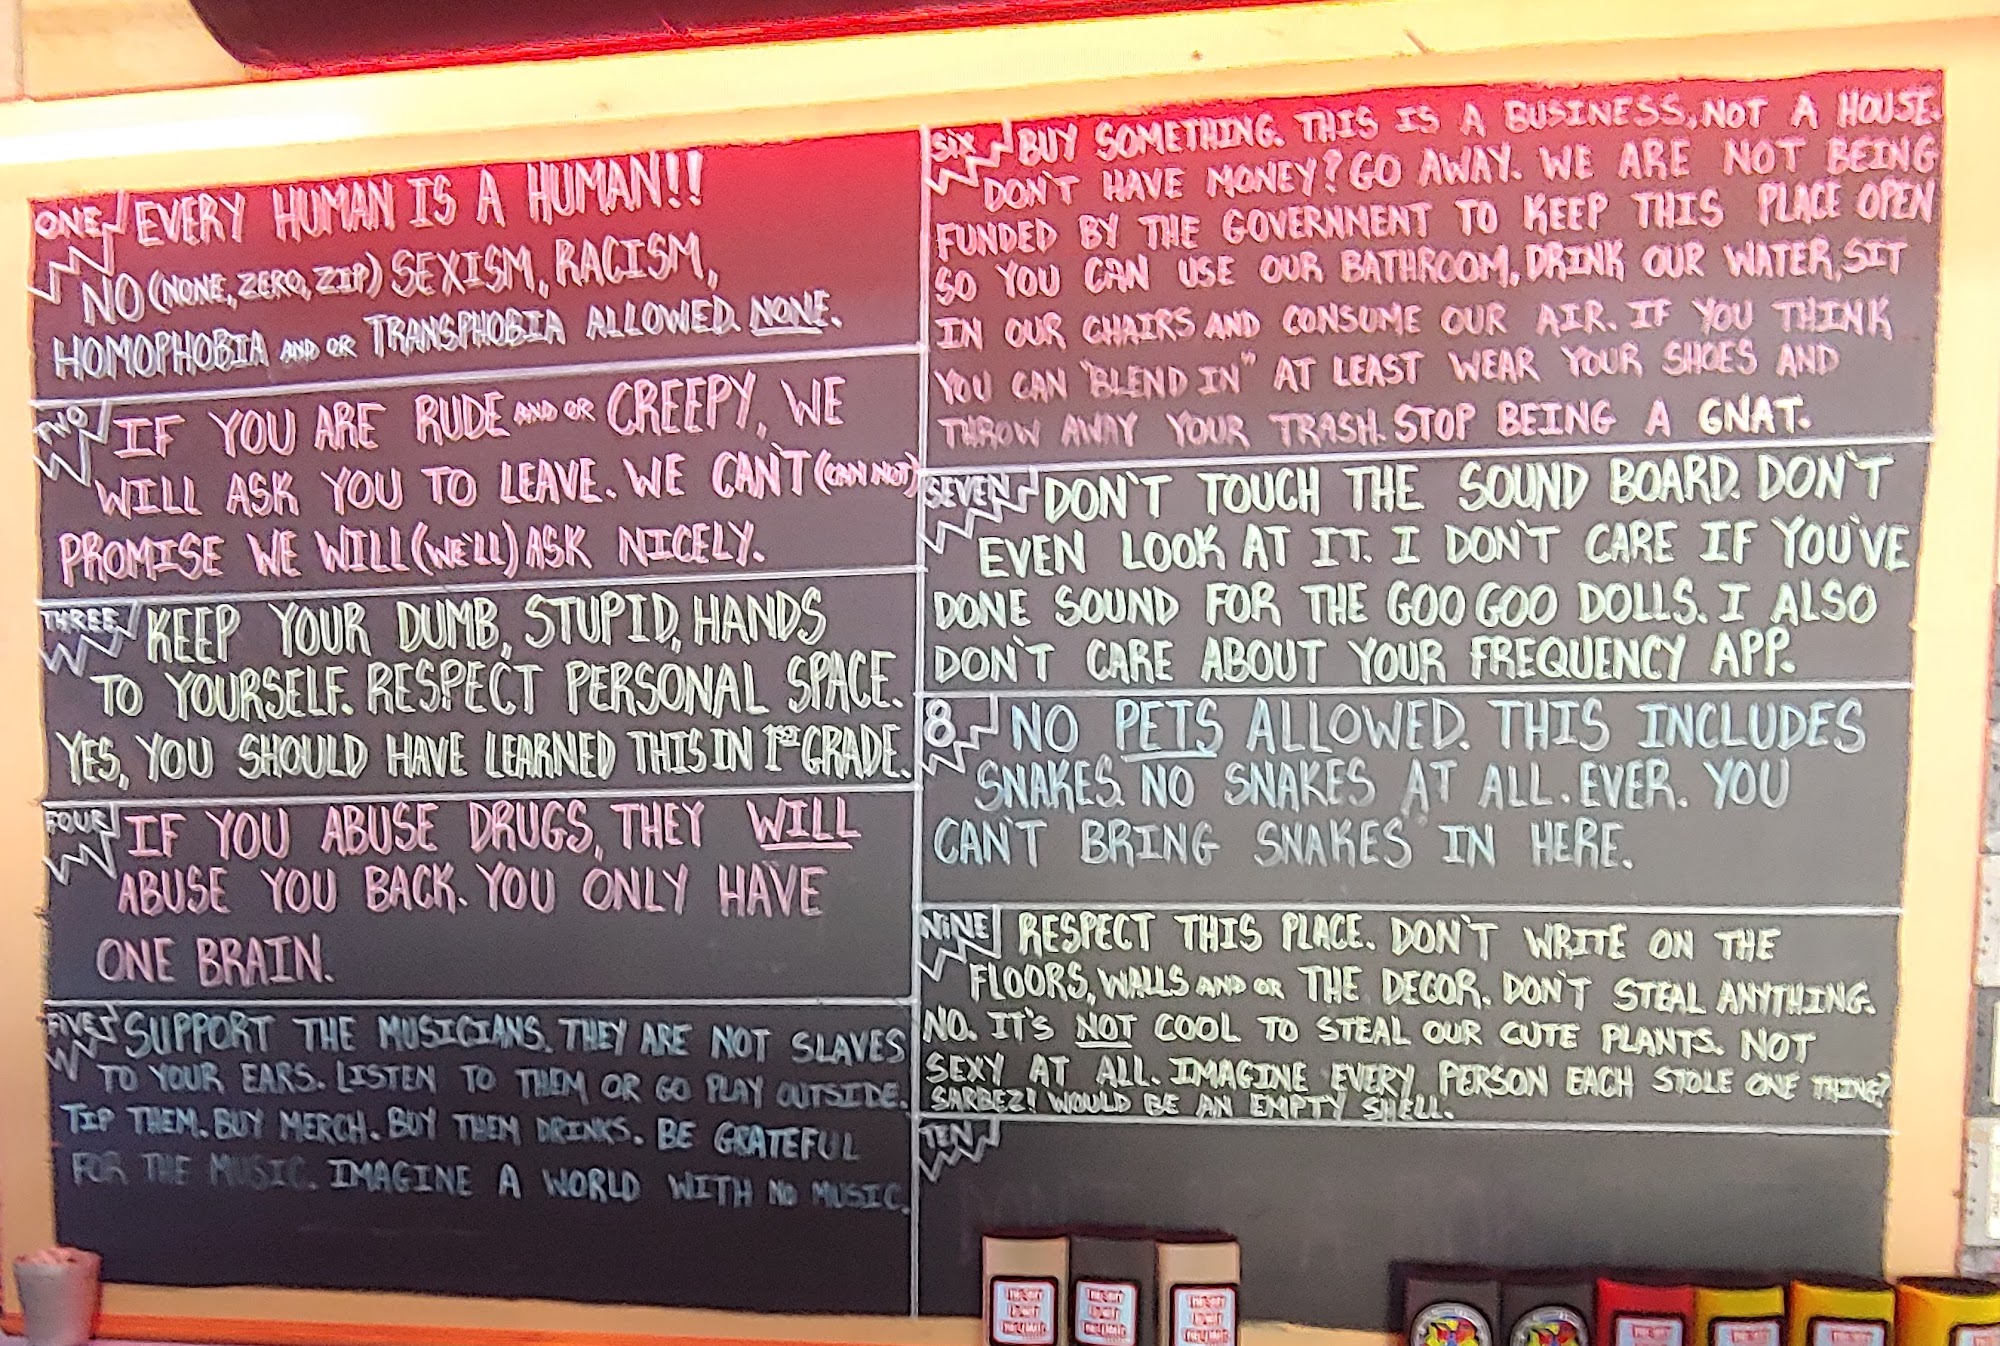 ONE EVERY HUMAN IS A HUMAN!!
NO (NONE, ZERO, ZIP) SEXISM, RACISM,
HOMOPHOBIA AND OR TRANSPHOBIA ALLOWED. NONE.
TWO IF YOU ARE RUDE AND OR CREEPY, WE
WILL ASK YOU TO LEAVE. WE CAN'T (CAN NOT)
PROMISE WE WILL (WE'LL) ASK NICELY.
THREE KEEP YOUR DUMB, STUPID, HANDS
TO YOURSELF. RESPECT PERSONAL SPACE.
YES, YOU SHOULD HAVE LEARNED THIS IN 1ST GRADE.
FOUR IF YOU ABUSE DRUGS, THEY WILL
ABUSE YOU BACK. YOU ONLY HAVE
ONE BRAIN.
FIVE SUPPORT THE MUSICIANS. THEY ARE NOT SLAVES
TO YOUR EARS. LISTEN TO THEM OR GO PLAY OUTSIDE.
TIP THEM. BUY MERCH. BUY THEM DRINKS. BE GRATEFUL
FOR THE MUSIC. IMAGINE A WORLD WITH NO MUSIC.
SIX BUY SOMETHING. THIS IS A BUSINESS, NOT A HOUSE.
DON'T HAVE MONEY? GO AWAY. WE ARE NOT BEING
FUNDED BY THE GOVERNMENT TO KEEP THIS PLACE OPEN
SO YOU CAN USE OUR BATHROOM, DRINK OUR WATER, SIT
IN OUR CHAIRS AND CONSUME OUR AIR. IF YOU THINK
YOU CAN "BLEND IN" AT LEAST WEAR YOUR SHOES AND
THROW AWAY YOUR TRASH. STOP BEING A GNAT.
SEVEN DON'T TOUCH THE SOUND BOARD. DON'T
EVEN LOOK AT IT. I DON'T CARE IF YOU'VE
DONE SOUND FOR THE GOO GOO DOLLS. I ALSO
DON'T CARE ABOUT YOUR FREQUENCY APP.
8 NO PETS ALLOWED. THIS INCLUDES
SNAKES. NO SNAKES AT ALL. EVER. YOU
CAN'T BRING SNAKES IN HERE.
NINE RESPECT THIS PLACE. DON'T WRITE ON THE
FLOORS, WALLS AND OR THE DECOR. DON'T STEAL ANYTHING.
NO. IT'S NOT COOL TO STEAL OUR CUTE PLANTS. NOT
SEXY AT ALL. IMAGINE EVERY PERSON EACH STOLE ONE THING?
SARBEZ! WOULD BE AN EMPTY SHELL.
TEN